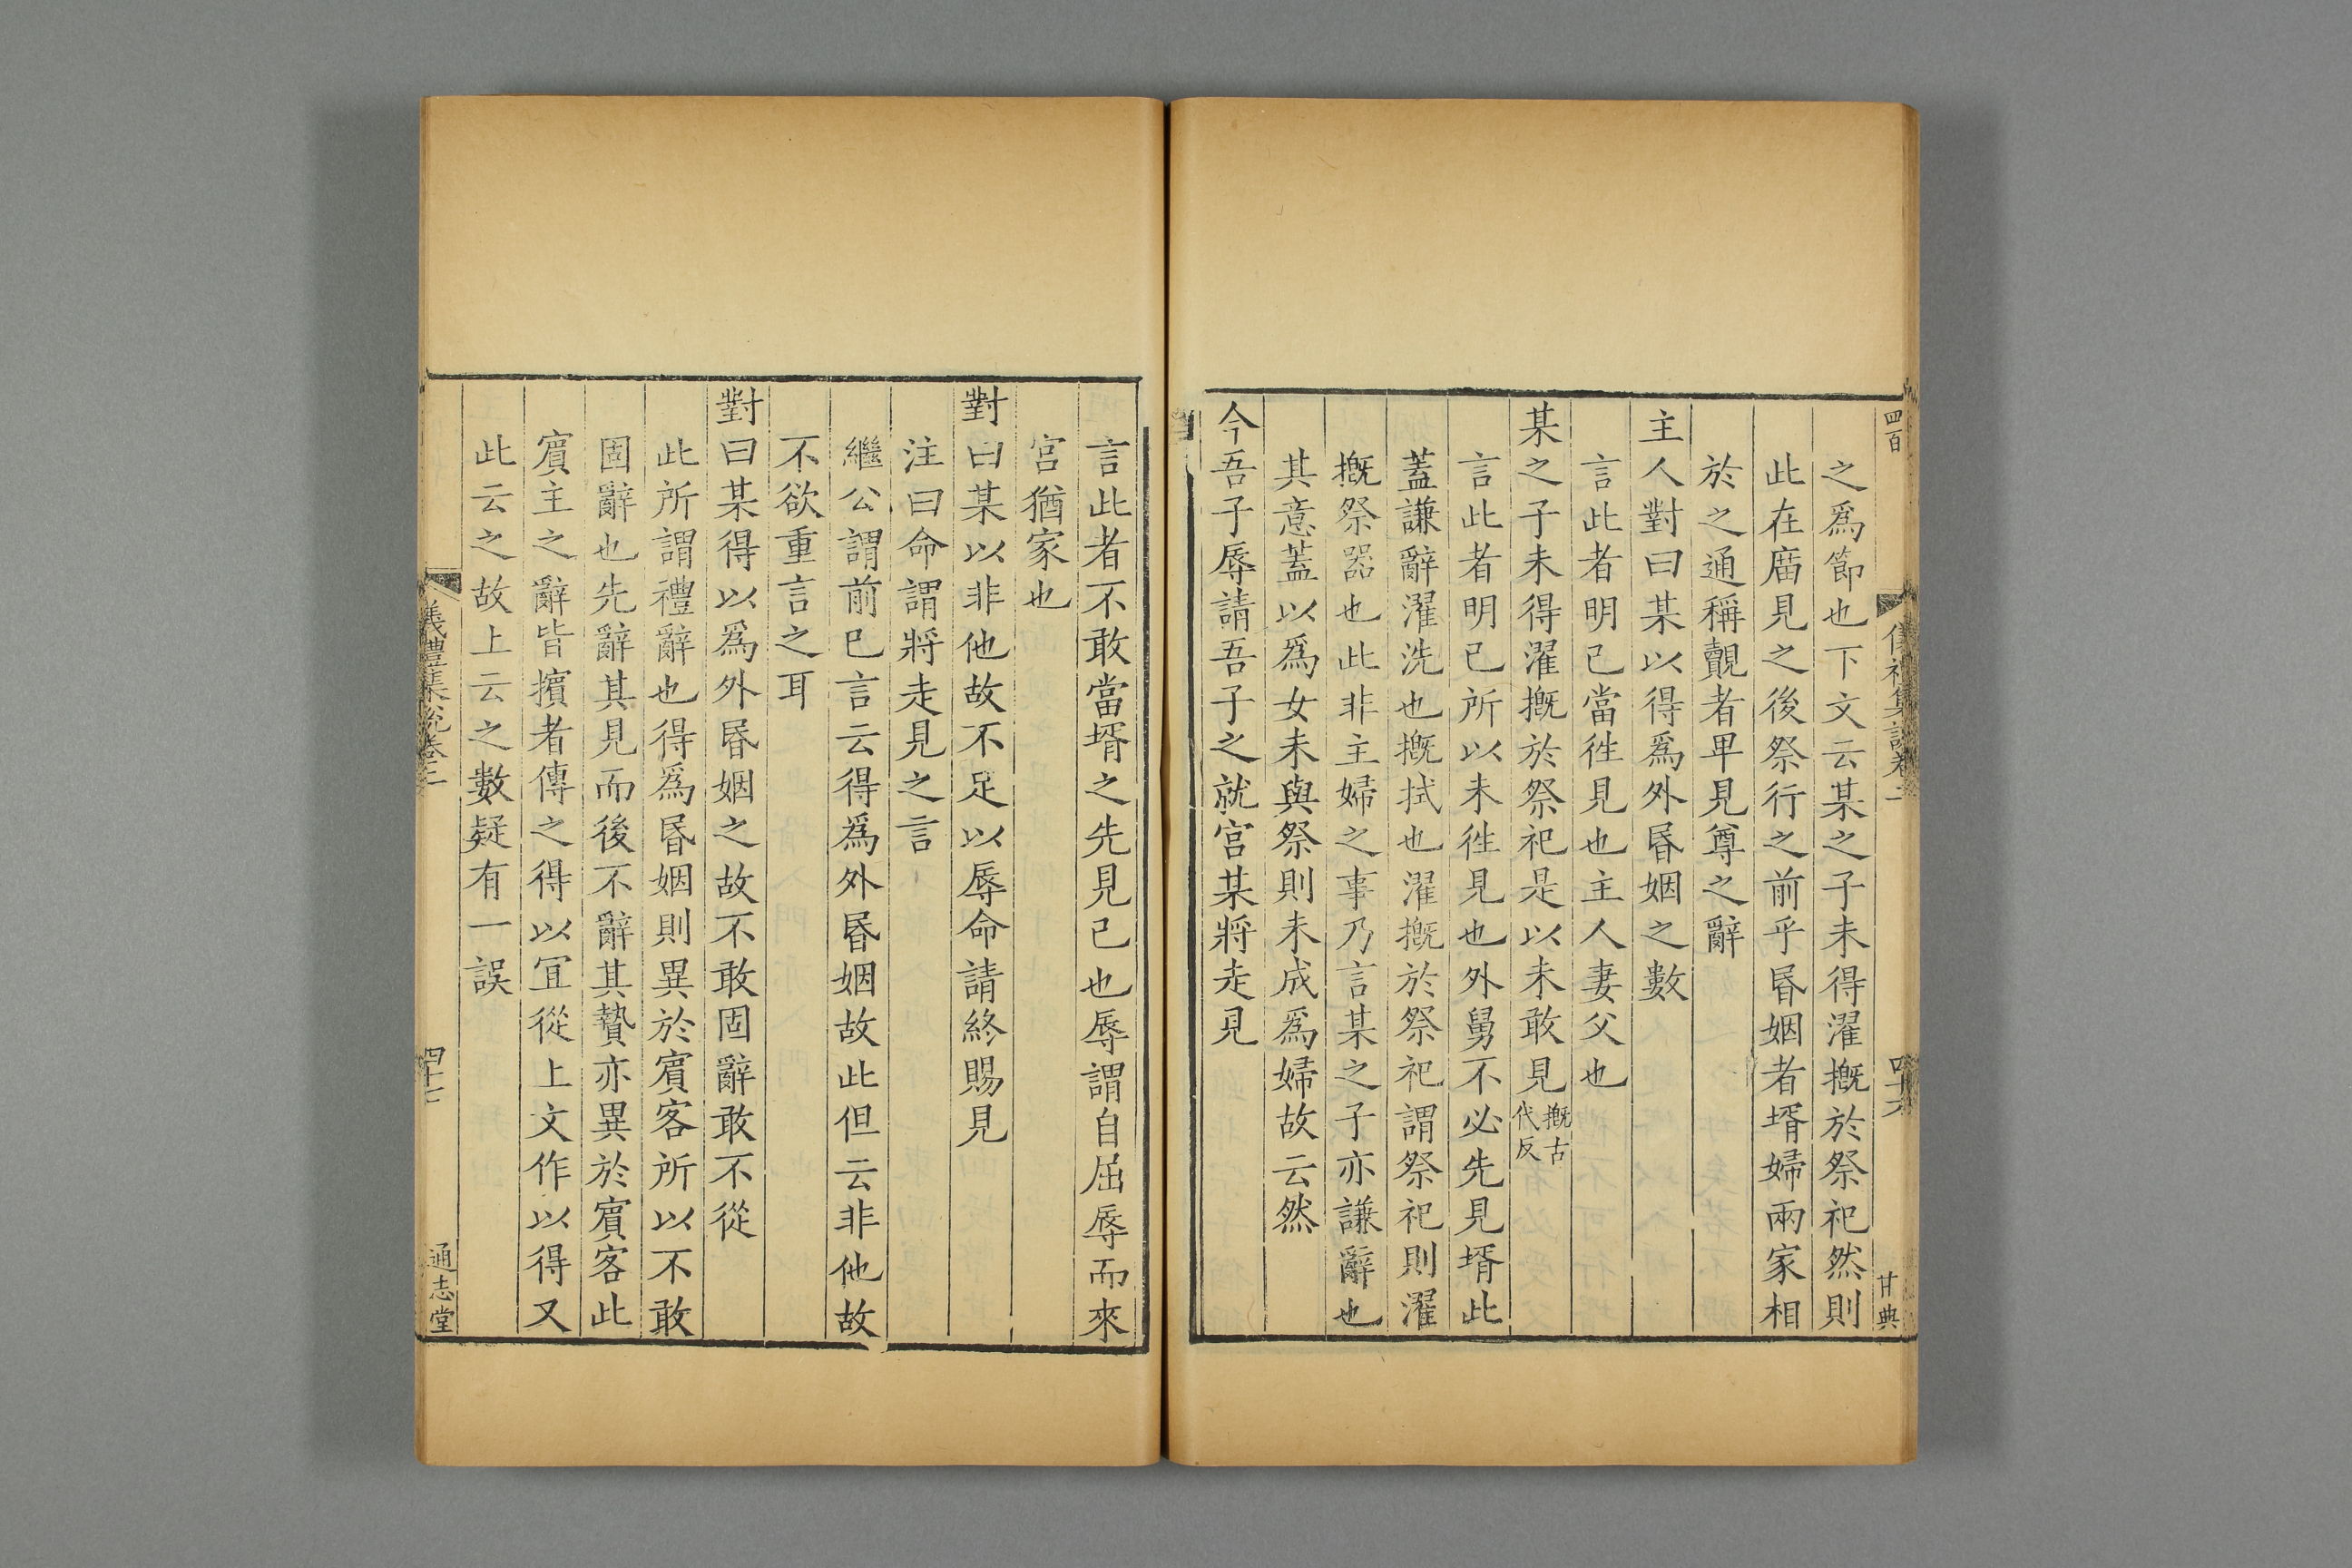 四百
儀禮集說卷二
四十六
甘典
之爲節也下文云某之子未得濯摡於祭祀然則
此在庿見之後祭行之前乎昬姻者壻婦兩家相
於之通稱覿者卑見尊之辭
主人對曰某以得爲外昬姻之數
言此者明己當徃見也主人妻父也
某之子未得濯摡於祭祀是以未敢見摡古代反
言此者明己所以未徃見也外舅不必先見壻此
蓋謙辭濯洗也摡拭也濯摡於祭祀謂祭祀則濯
摡祭器也此非主婦之事乃言某之子亦謙辭也
其意蓋以爲女未與祭則未成爲婦故云然
今吾子辱請吾子之就宫某將走見
言此者不敢當壻之先見己也辱謂自屈辱而來
宫猶家也
對曰某以非他故不足以辱命請終賜見
注曰命謂將走見之言
繼公謂前已言云得爲外昬姻故此但云非他故
不欲重言之耳
對曰某得以爲外昬姻之故不敢固辭敢不從
此所謂禮辭也得爲昬姻則異於賓客所以不敢
固辭也先辭其見而後不辭其贄亦異於賓客此
賓主之辭皆擯者傳之得以冝從上文作以得又
此云之故上云之數疑有一誤
儀禮集說卷二
四十七
通志堂